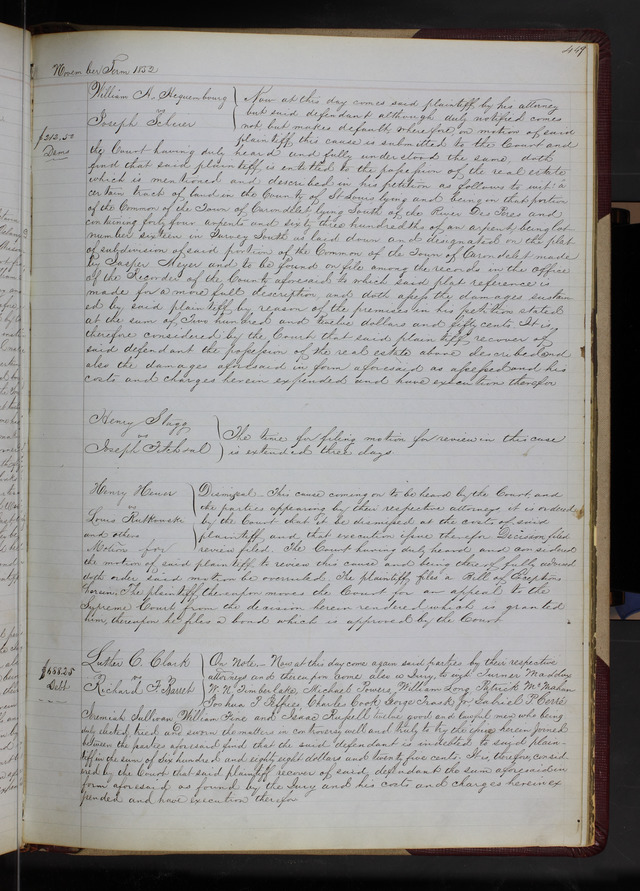 449
November Term 1852
William A. Hequembourg
vs
Joseph Scherer
$212.50
Dems
Now at this day comes said plaintiff by his attorney
but said defendant although duly notified comes
not but makes default, wherefore on motion of said
plaintiff this cause is submitted to the Court and
the Court having duly heard and fully understood the same, doth
find that said plaintiff is entitled to the possession of the real estate
which is mentioned and described in his petition as follows to wit: a
certain tract of land in the County of St Louis lying and being in that portion
of the Common of the Town of Carondelet lying South of the River Des Peres and
containing forty four arpents and sixty three hundredths of an arpent being lot
number sixteen in Survey South as laid down and designated on the plat
of subdivision of said portion of the Common of the Town of Carondelet made
by Jasper Meyer and to be found on file among the records in the office
of the Recorder of the County aforesaid to which said plat reference is
made for a more full description, and doth assess the damages sustain
ed by said plaintiff by reason of the premises in his petition stated
at the sum of Two hundred and twelve dollars and fifty cents. It is
therefore considered by the Court that said plaintiff recover of
said defendant the possession of the real estate above described and
also the damages aforesaid in form aforesaid as assessed and his
costs and charges herein expended and have execution therefor
Henry Stagg
vs
Joseph
The time for filing motion for review in this case
is extended three days
Henry
vs
Louis Rutkowski
and others
Motion for
Dismissal — This cause coming on to be heard by the Court, and
the parties appearing by their respective attorneys it is ordered
by the Court that it be dismissed at the costs of said
plaintiff and that execution issue therefor Decision filed
review filed. The Court having duly heard and considered
the motion of said plaintiff to review this cause and being thereof fully advised
doth order said motion be overruled. The plaintiff files a Bill of Exceptions
herein. The plaintiff thereupon moves the Court for an appeal to the
Supreme Court from the decision herein rendered which is granted
him, thereupon he files a bond which is approved by the Court
Luther C. Clark
vs
Richard F. Barret
$688.25
Debt
On Note — Now at this day come again said parties by their respective
attorneys and thereupon come also a Jury, to wit: Turner Maddox
W. N. Timberlake, Michael Powers, William Long, Patrick McMahan
Joshua F. Charles Cook, George Trask Jr Gabriel P. Cerré
Jeremiah Sullivan William Fine and Isaac Russell twelve good and lawful men who being
duly elected, tried and sworn the matters in controversy well and truly to try the issue herein joined
between the parties aforesaid find that the said defendant is indebted to said plain-
tiff in the sum of Six hundred and eighty eight dollars and twenty five cents. It is, therefore, consid
ered by the Court that said plaintiff recover of said defendant the sum aforesaid in
form aforesaid as found by the Jury and his costs and charges herein ex
pended and have execution therefor